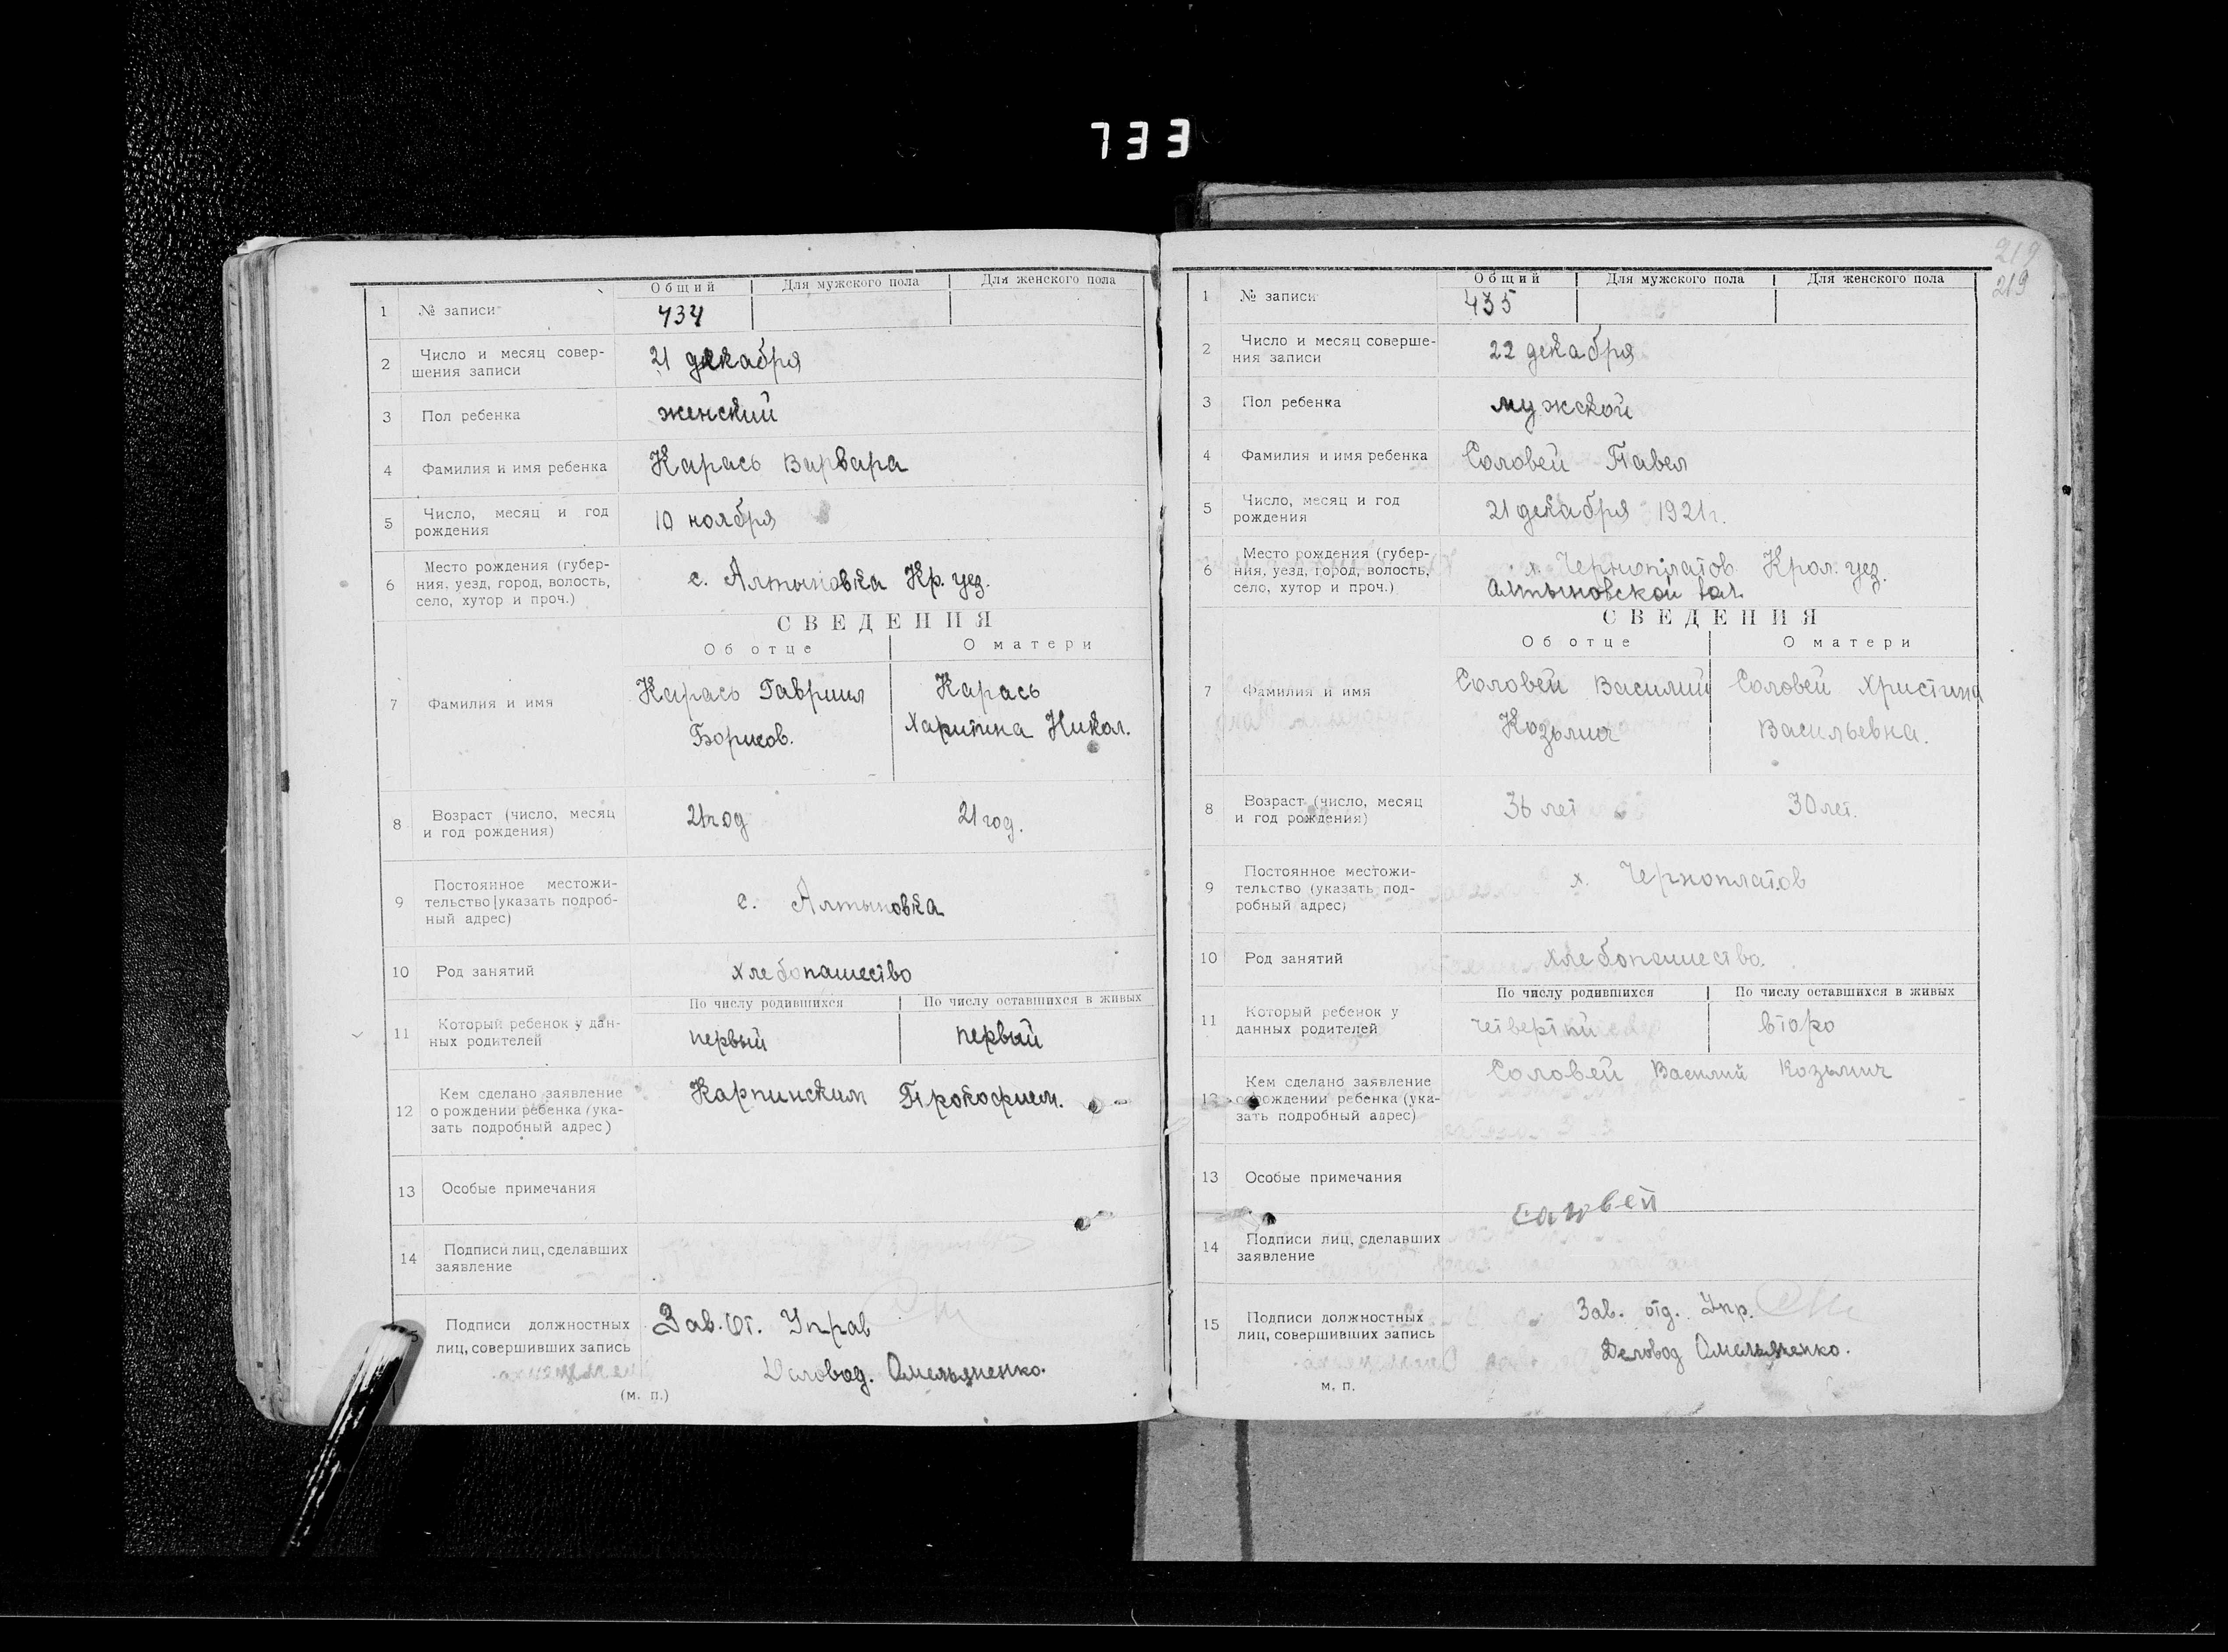 733
Общий Для мужского пола Для женского пола
1 № записи 434
2 Число и месяц совер-
шения записи 21 декабря
3 Пол ребенка женский
4 Фамилия и имя ребенка Карась Варвара
5 Число, месяц и год
рождения 10 ноября
6 Место рождения (губер-
ния, уезд, город, волость,
село, хутор и проч.) с. Алтыновка Кр. уез.
СВЕДЕНИЯ
Об отце О матери
7 Фамилия и имя Карась Гавриил Карась
Борисов. Харитина Никол.
8 Возраст (число, месяц
и год рождения) 21 год 21 год.
9 Постоянное местожи-
тельство (указать подроб-
ный адрес) с. Алтыновка
10 Род занятий хлебопашество
По числу родившихся По числу оставшихся в живых
11 Который ребенок у дан-
ных родителей первый первый
12 Кем сделано заявление
о рождении ребенка (ука-
зать подробный адрес) Карпинским Прокофием.
13 Особые примечания
14 Подписи лиц, сделавших
заявление
Подписи должностных
лиц, совершивших запись Зав. От. Управ
Деловод. Омельяненко.
(м. п.)
219
219
Общий Для мужского пола Для женского пола
1 № записи 435
2 Число и месяц соверше-
ния записи 22 декабря
3 Пол ребенка мужской
4 Фамилия и имя ребенка Соловей Павел
5 Число, месяц и год
рождения 21 декабря 1921 г.
6 Место рождения (губер-
ния, уезд, город, волость,
село, хутор и проч.) х. Черноплатов Крол. уез.
Алтыновской вол.
СВЕДЕНИЯ
Об отце О матери
7 Фамилия и имя Соловей Василий Соловей Христина
Козьмич Васильевна.
8 Возраст (число, месяц
и год рождения) 36 лет 30 лет.
9 Постоянное местожи-
тельство (указать под-
робный адрес) х. Черноплатов
10 Род занятий хлебопашество.
По числу родившихся По числу оставшихся в живых
11 Который ребенок у
данных родителей четвертый второ
12 Кем сделано заявление
о рождении ребенка (ука-
зать подробный адрес) Соловей Василий Козьмич
13 Особые примечания
14 Подписи лиц, сделавших
заявление
15 Подписи должностных
лиц, совершивших запись Зав. отд. Упр.
Деловод Омельяненко.
м. п.